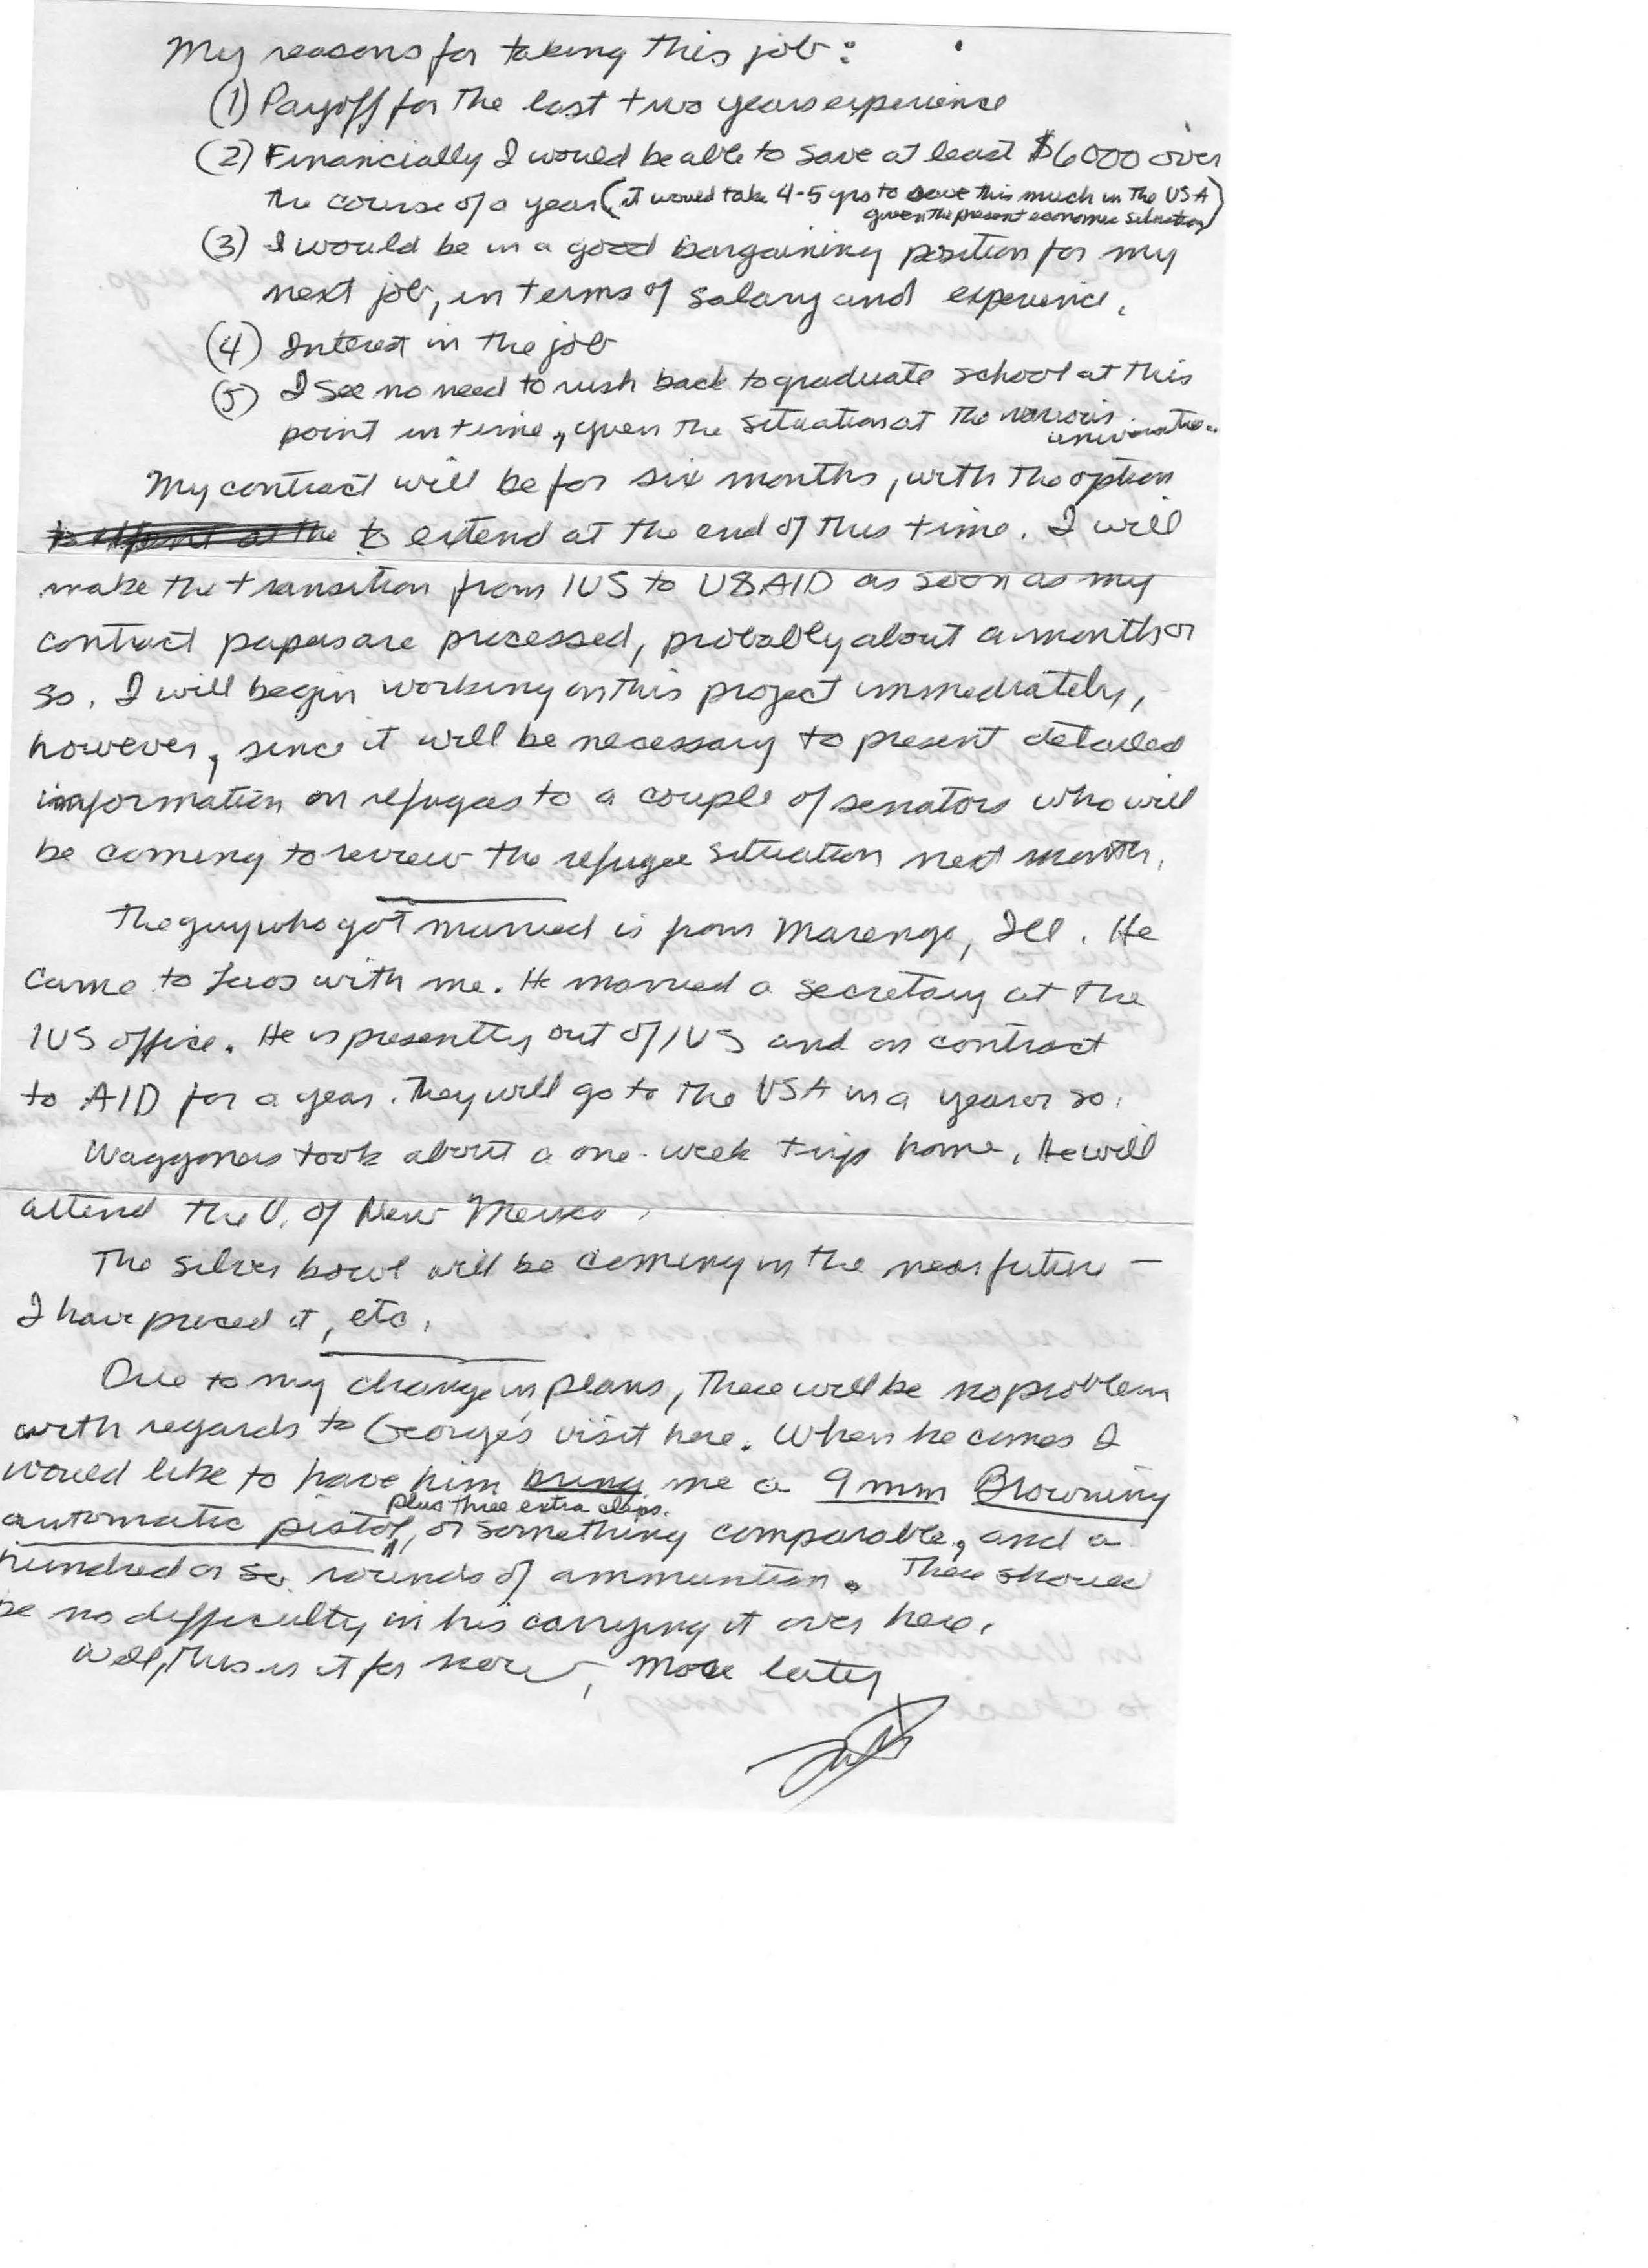 My reasons for taking this job:
(1) Payoff for the last two years experience
(2) Financially I would be able to save at least $6000 over
the course of a year (it would take 4-5 yrs to save this much in the USA
given the present economic situation)
(3) I would be in a good bargaining position for my
next job, in terms of salary and experience.
(4) Interest in the job
(5) I see no need to rush back to graduate school at this
point in time, given the situation at the various
universities.
My contract will be for six months, with the option
to extend at the end of this time. I will
make the transition from IVS to USAID as soon as my
contract papers are processed, probably about a month or
so. I will begin working on this project immediately,
however, since it will be necessary to present detailed
information on refugees to a couple of senators who will
be coming to review the refugee situation next month.
The guy who got married is from Marengo, Ill. He
came to Laos with me. He married a secretary at the
IVS office. He is presently out of IVS and on contract
to AID for a year. They will go to the USA in a year or so.
Waggoners took about a one-week trip home. He will
attend the U. of New Mexico.
The silver bowl will be coming in the near future –
I have priced it, etc.
Due to my change in plans, there will be no problem
with regards to George's visit here. When he comes I
would like to have him bring me a 9mm Browning
plus three extra clips.
automatic pistol, or something comparable, and a
hundred or so rounds of ammuntion. There should
be no difficulty in his carrying it over here.
Well, this is it for now, more later